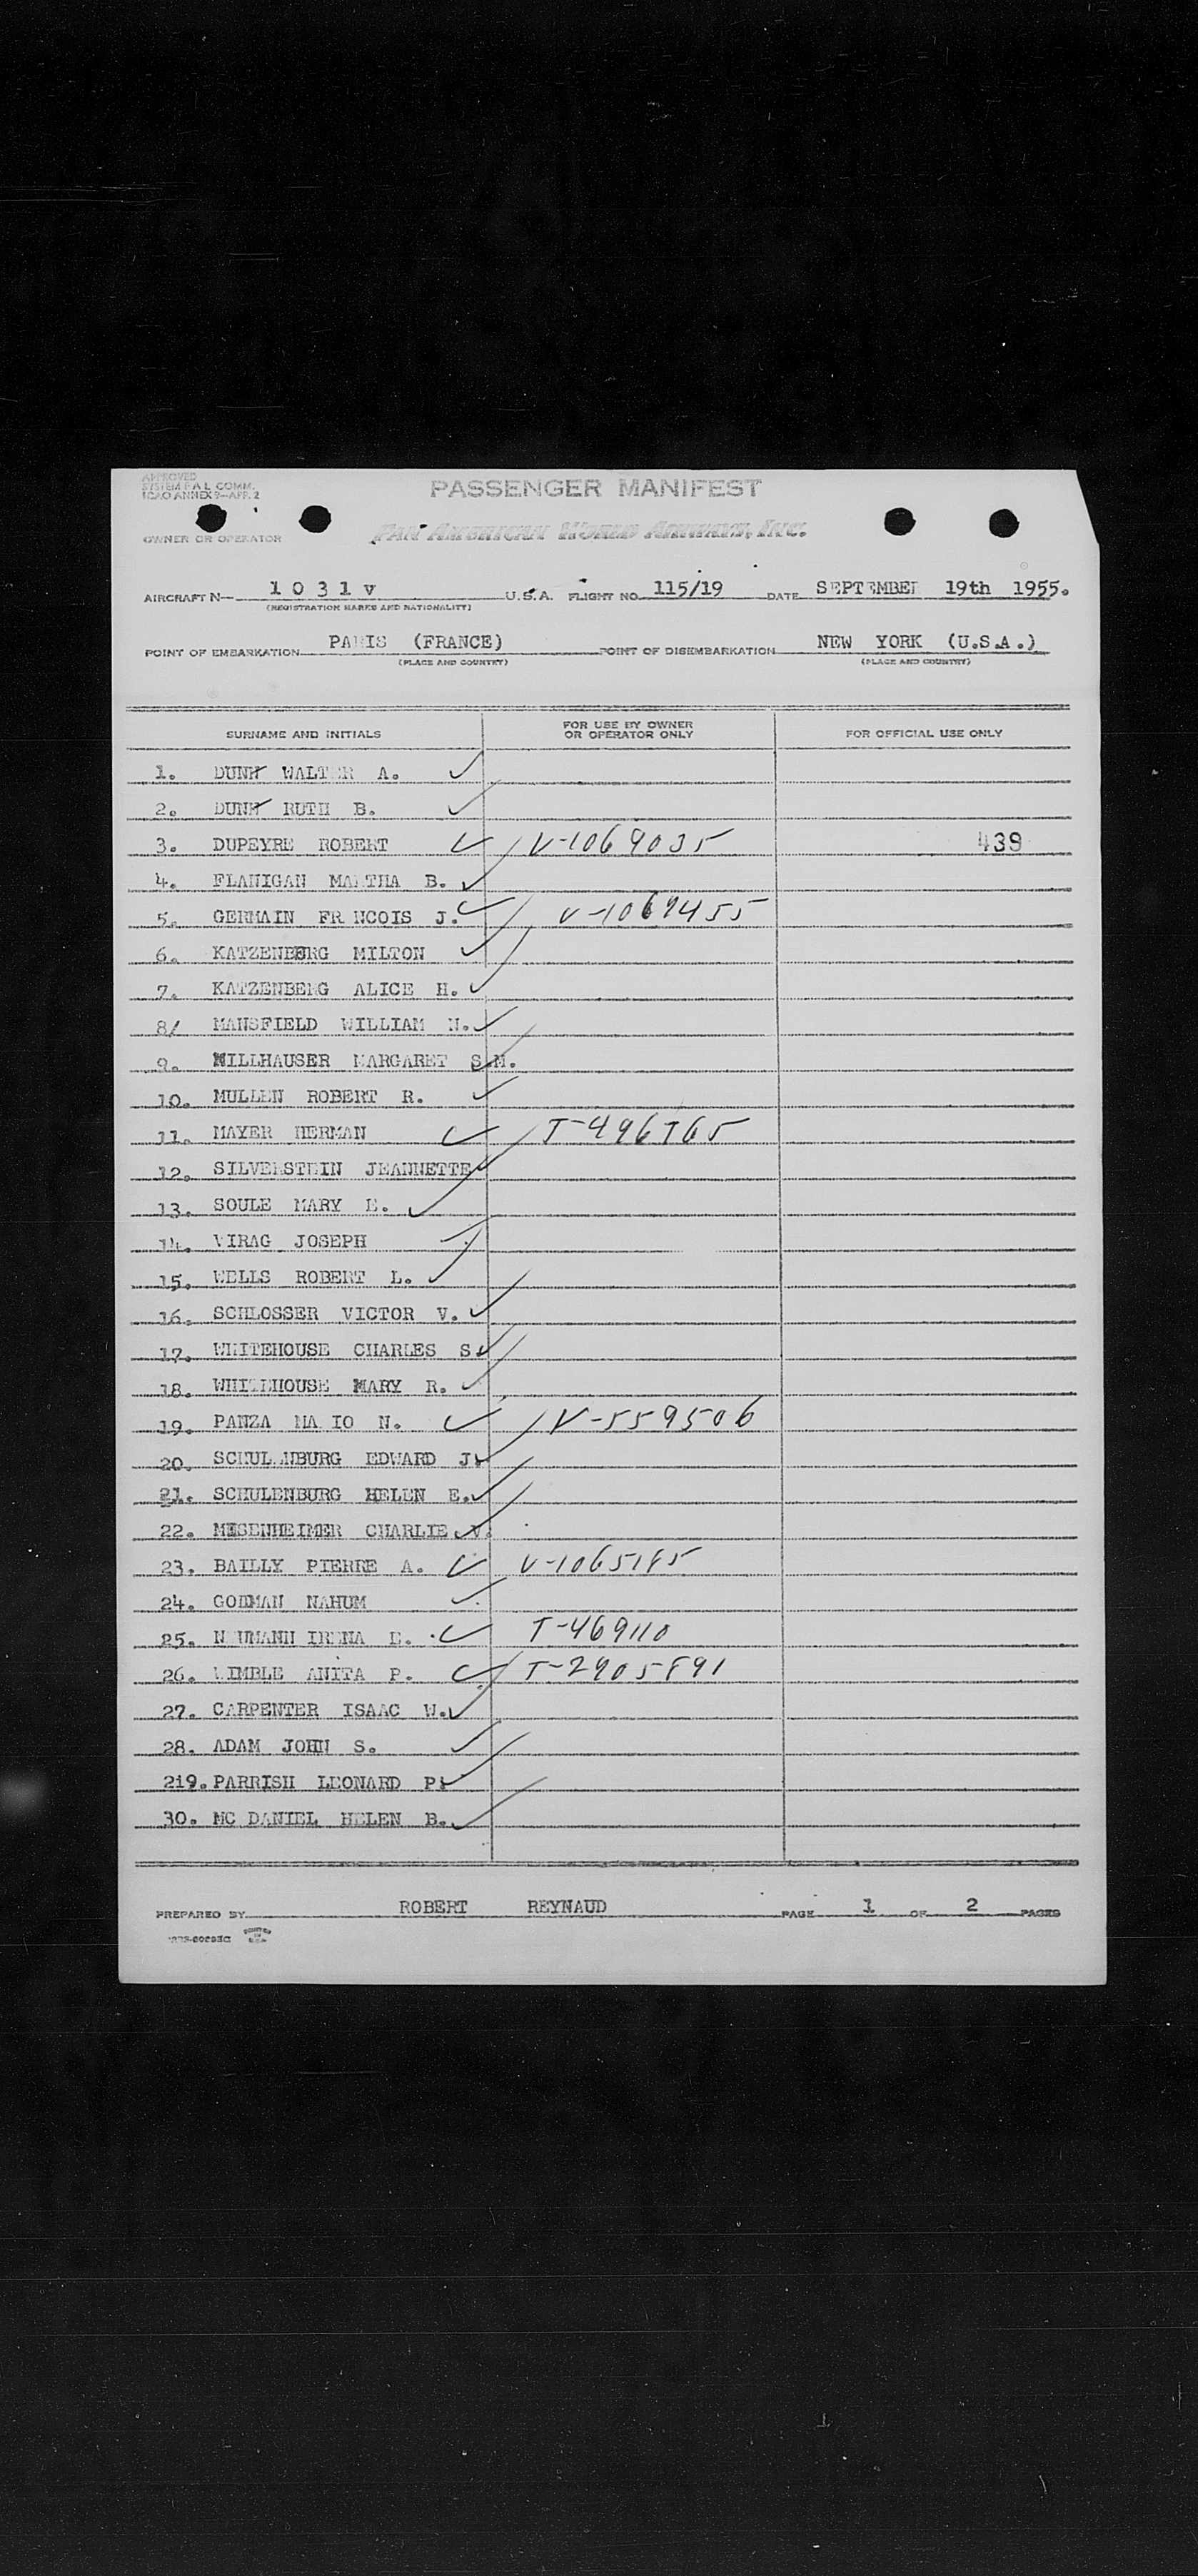 APPROVED
SYSTEM P A L COMM.
ICAO ANNEX 9-APP. 2
PASSENGER MANIFEST
OWNER OR OPERATOR
PAN AMERICAN WORLD AIRWAYS, INC.
AIRCRAFT N- 1 0 3 1 v U.S.A. FLIGHT NO. 115/19 DATE SEPTEMBER 19th 1955.
(REGISTRATION MARKS AND NATIONALITY)
POINT OF EMBARKATION PARIS (FRANCE) POINT OF DISEMBARKATION NEW YORK (U.S.A.)
(PLACE AND COUNTRY) (PLACE AND COUNTRY)
SURNAME AND INITIALS FOR USE BY OWNER OR OPERATOR ONLY FOR OFFICIAL USE ONLY
1. DUNN WALTER A.
2. DUNN RUTH B.
3. DUPEYRE ROBERT V-1069035 439
4. FLANIGAN MARTHA B.
5. GERMAIN FRANCOIS J. V-1069455
6. KATZENBERG MILTON
7. KATZENBERG ALICE H.
8/ MANSFIELD WILLIAM N.
9. MILLHAUSER MARGARET S.M.
10. MULLEN ROBERT R.
11. MAYER HERMAN T-496765
12. SILVERSTEIN JEANNETTE
13. SOULE MARY E.
14. VIRAG JOSEPH
15. WELLS ROBERT L.
16. SCHLOSSER VICTOR V.
17. WHITEHOUSE CHARLES S.
18. WHITEHOUSE MARY R.
19. PANZA MARIO N. V-559506
20. SCHULENBURG EDWARD J.
21. SCHULENBURG HELEN E.
22. MISENHEIMER CHARLIE V.
23. BAILLY PIERRE A. V-1065185
24. GODMAN NAHUM
25. NEUMANN IRENA E. T-469110
26. WIMBLE ANITA P. T-2905891
27. CARPENTER ISAAC W.
28. ADAM JOHN S.
219. PARRISH LEONARD P.
30. MC DANIEL HELEN B.
PREPARED BY ROBERT REYNAUD PAGE 1 OF 2 PAGES
PRINTED IN U.S.A.